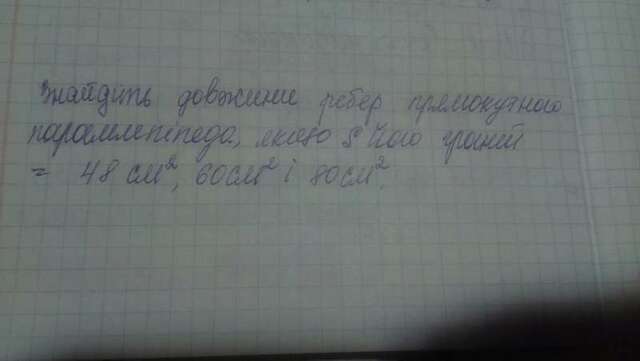 Знайдіть довжини ребер прямокутного
паралелепіпеда, якщо S його граней
= 48 см², 60 см² і 80 см².